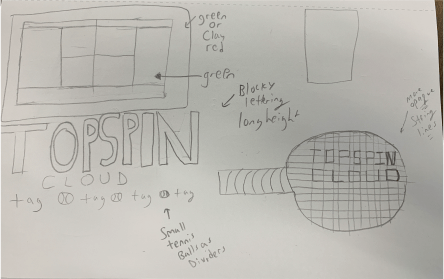 green
or
Clay
red
green
Blocky
lettering
long height
TOPSPIN
CLOUD
tag tag tag tag
Small
tennis
Balls as
Dividers
more
opaque
String
lines
TOPSPIN
CLOUD